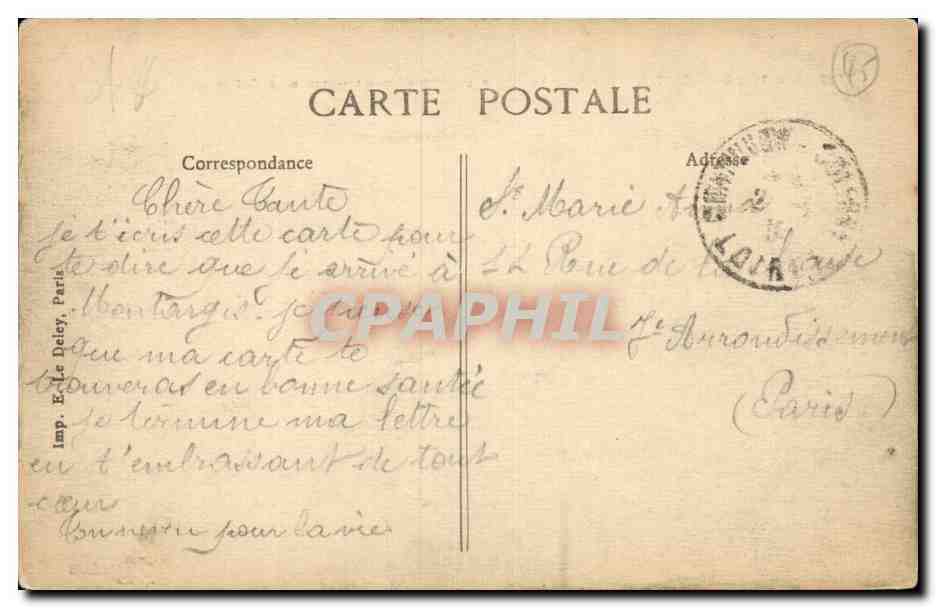 CARTE POSTALE
45
Correspondance
Adresse
Chère Tante
je t'ecris cette carte pour
te dire que je arrivé à
Montargis. je
que ma carte te
trouveras en bonne santée
je termine ma lettre
en t'embrassant de tout
cœur
Ton neveu pour la vie
Marie
Rue de
7e Arrondissement
(Paris.)
Imp. E. Le Deley, Paris
CPAPHIL